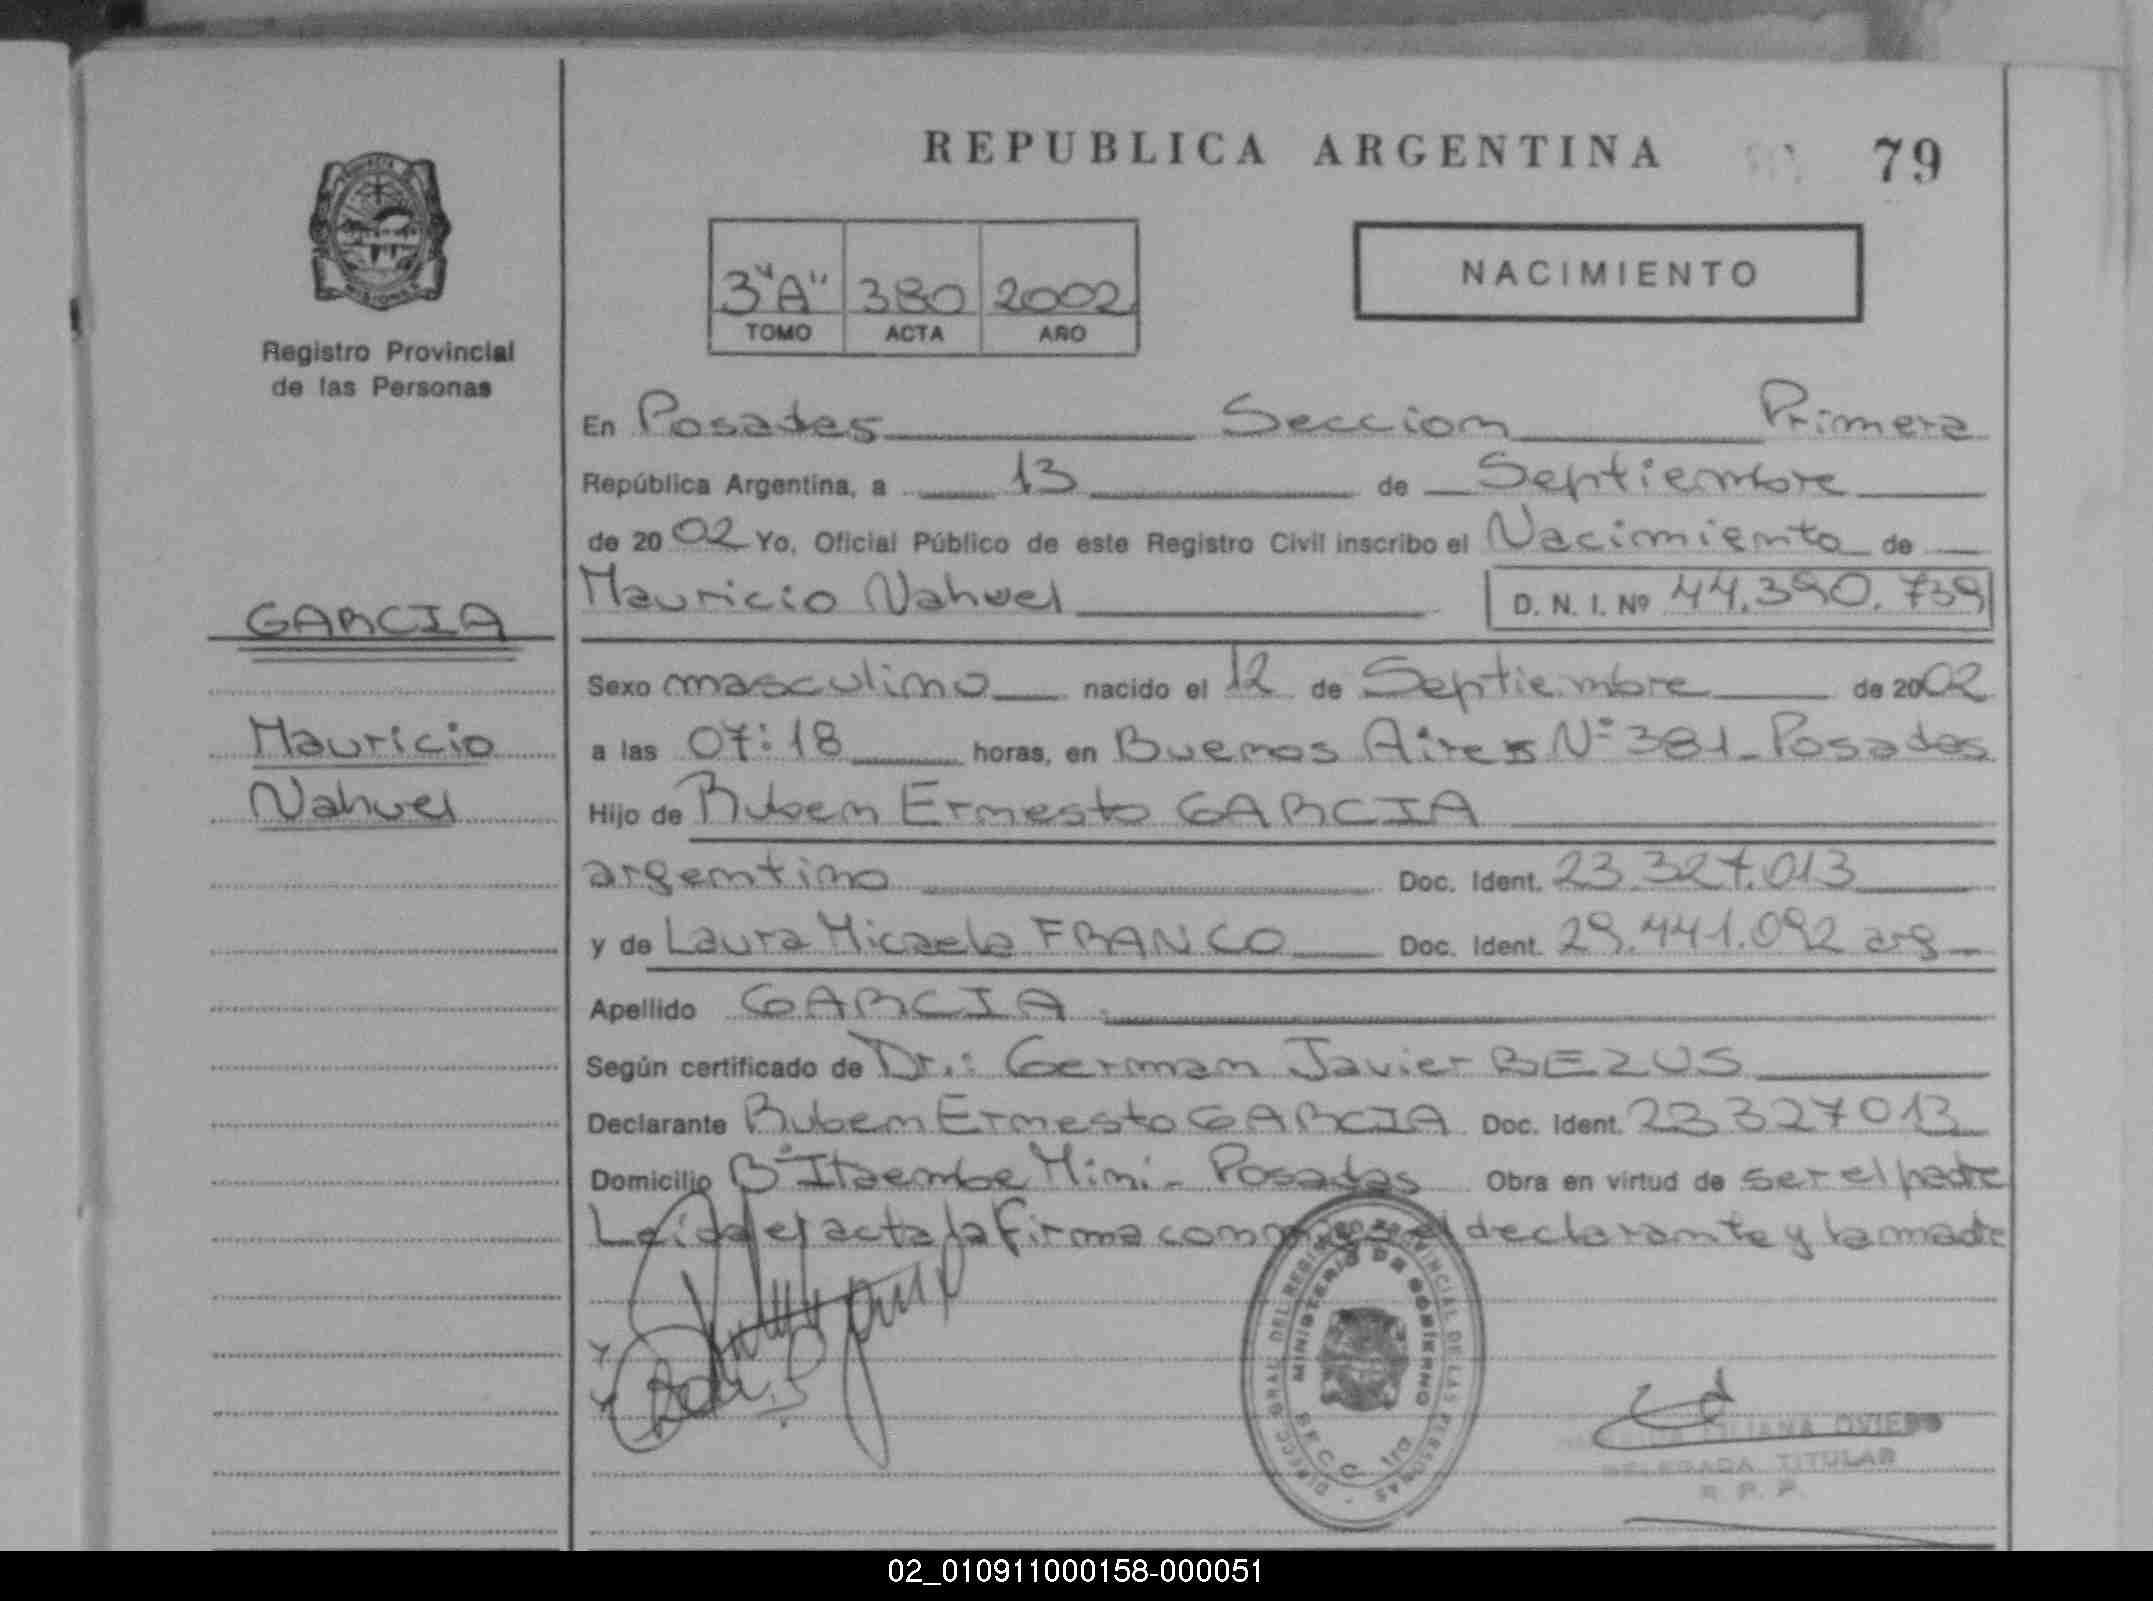 REPUBLICA ARGENTINA 79
3"A" 380 2002
TOMO ACTA AÑO
NACIMIENTO
Registro Provincial
de las Personas
En Posadas Seccion Primera
República Argentina, a 13 de Septiembre
de 2002 Yo, Oficial Público de este Registro Civil inscribo el Nacimiento de
Mauricio Nahuel D. N. I. Nº 44.390.739
GARCIA
Sexo masculino nacido el 12 de Septiembre de 2002
Mauricio
a las 07:18 horas, en Buenos Aires Nº 381 - Posadas
Nahuel
Hijo de Ruben Ernesto GARCIA
argentino Doc. Ident. 23.327.013
y de Laura Micaela FRANCO Doc. Ident. 29.441.092 arg
Apellido GARCIA
Según certificado de Dr.: German Javier BEZUS
Declarante Ruben Ernesto GARCIA Doc. Ident. 23327013
Domicilio Bº Itaembe Mini - Posadas Obra en virtud de ser el padre
Leida el acta la firma conmigo el declarante y la madre
DIRECC. GRAL. DEL REGISTRO PROVINCIAL DE LAS PERSONAS
MINISTERIO DE GOBIERNO
SECC. 1ra
LILIANA OVIEDO
DELEGADA TITULAR
R. P. P.
02_010911000158-000051